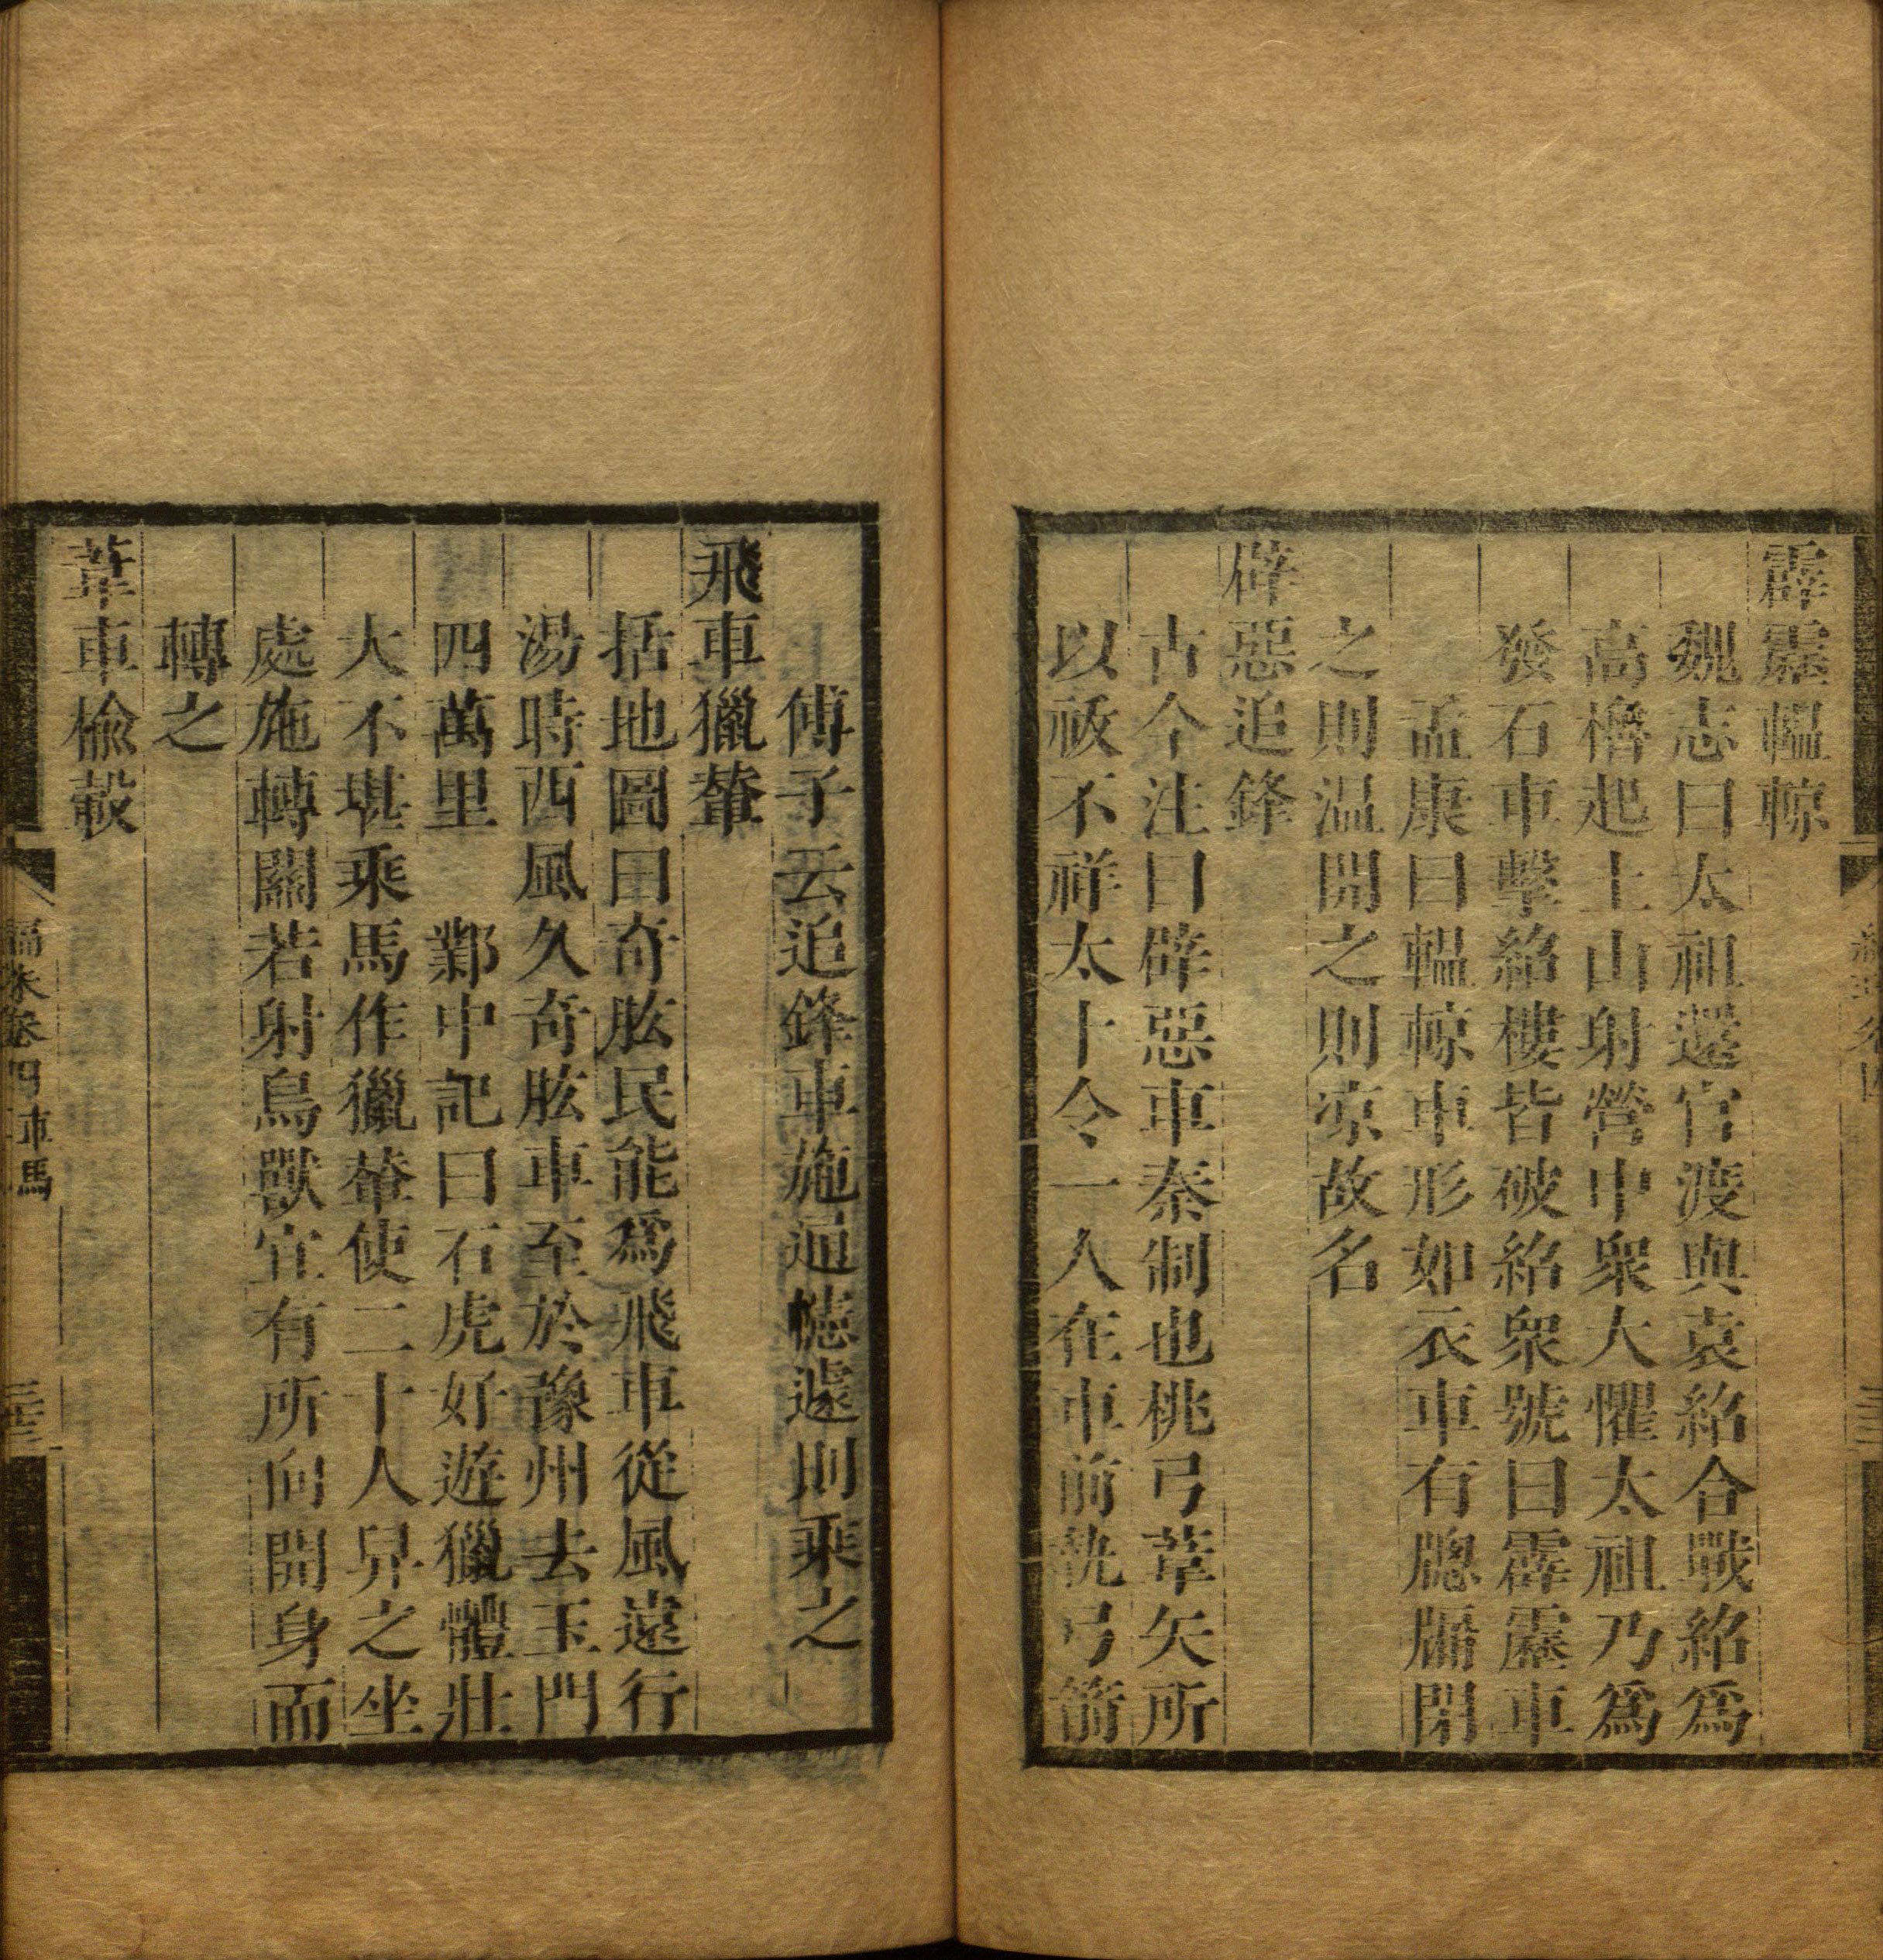 霹靂轀輬
魏志曰太祖還官渡與袁紹合戰紹爲
高櫓起土山射營中衆大懼太祖乃爲
發石車擊紹樓皆破紹衆號曰霹靂車
孟康曰轀輬車形如衣車有牕牖閉
之則温開之則凉故名
辟惡追鋒
古今注曰辟惡車秦制也桃弓葦矢所
以祓不祥太卜令一人在車前執弓箭
傅子云追鋒車施通幰遽則乘之
飛車獵輦
括地圖曰奇肱民能爲飛車從風遠行
湯時西風久奇肱車至於豫州去玉門
四萬里　鄴中記曰石虎好遊獵體壯
大不堪乘馬作獵輦使二十人舁之坐
處施轉關若射鳥獸宜有所向關身而
轉之
葦車楡轂
編珠卷四車馬
三十三